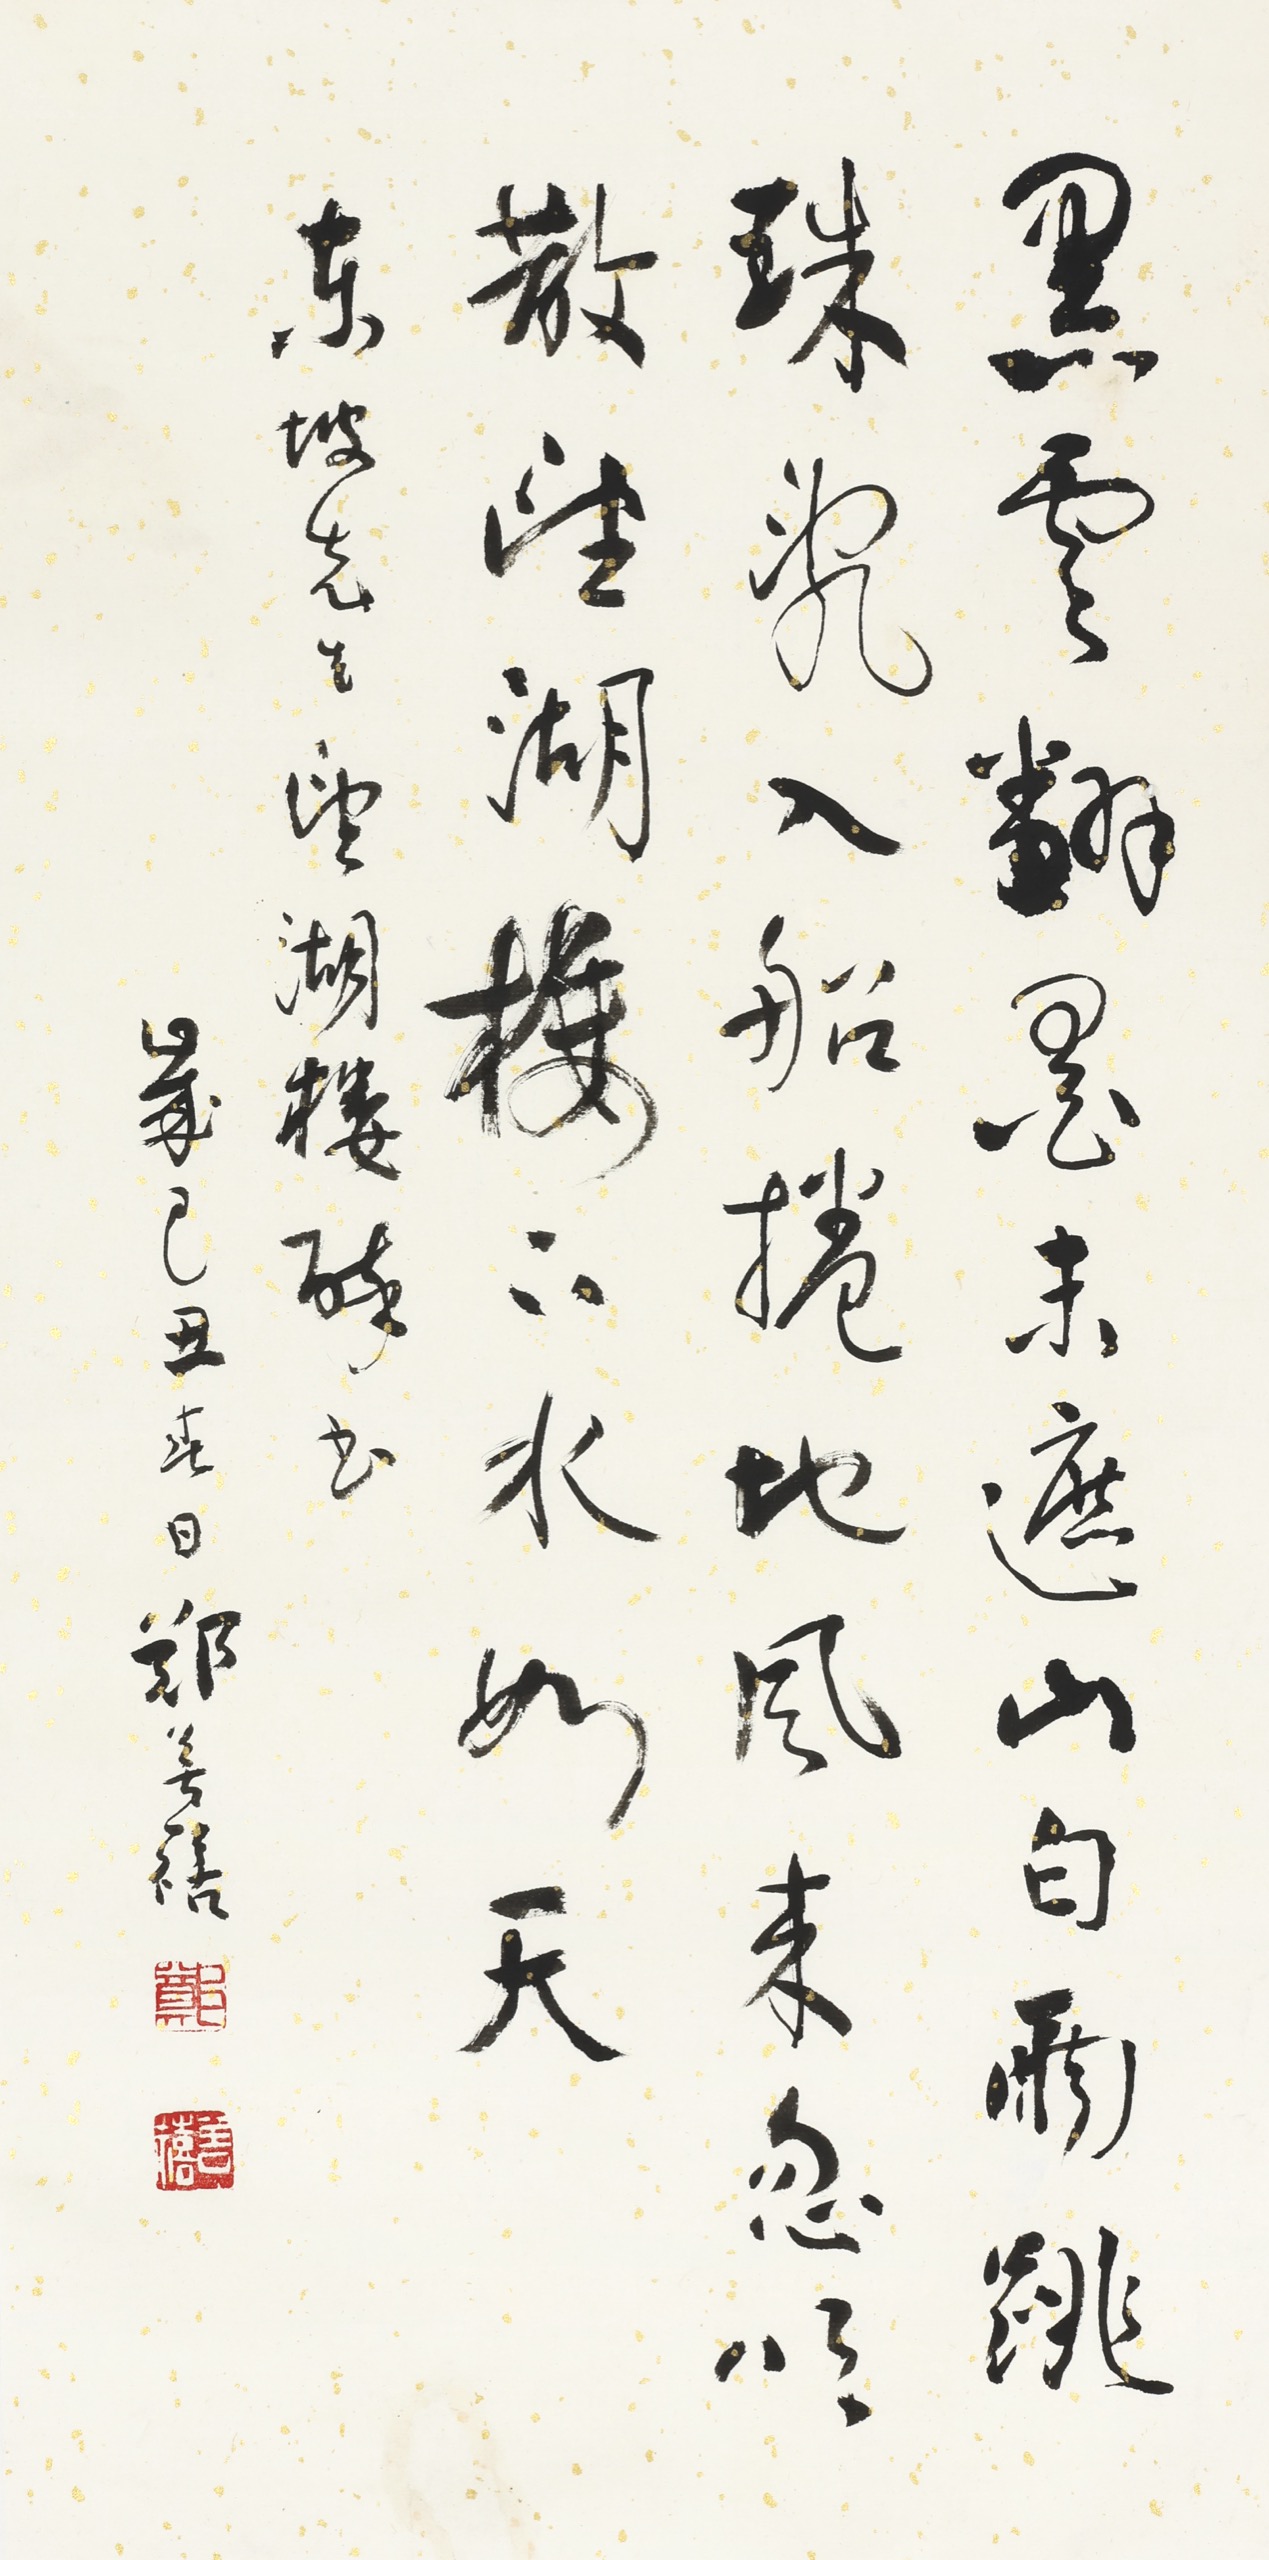 黑雲翻墨未遮山白雨跳
珠亂入船捲地風來忽吹
散望湖樓下水如天
東坡先生望湖樓醉書
歲己丑春日鄭善禧
鄭
善禧